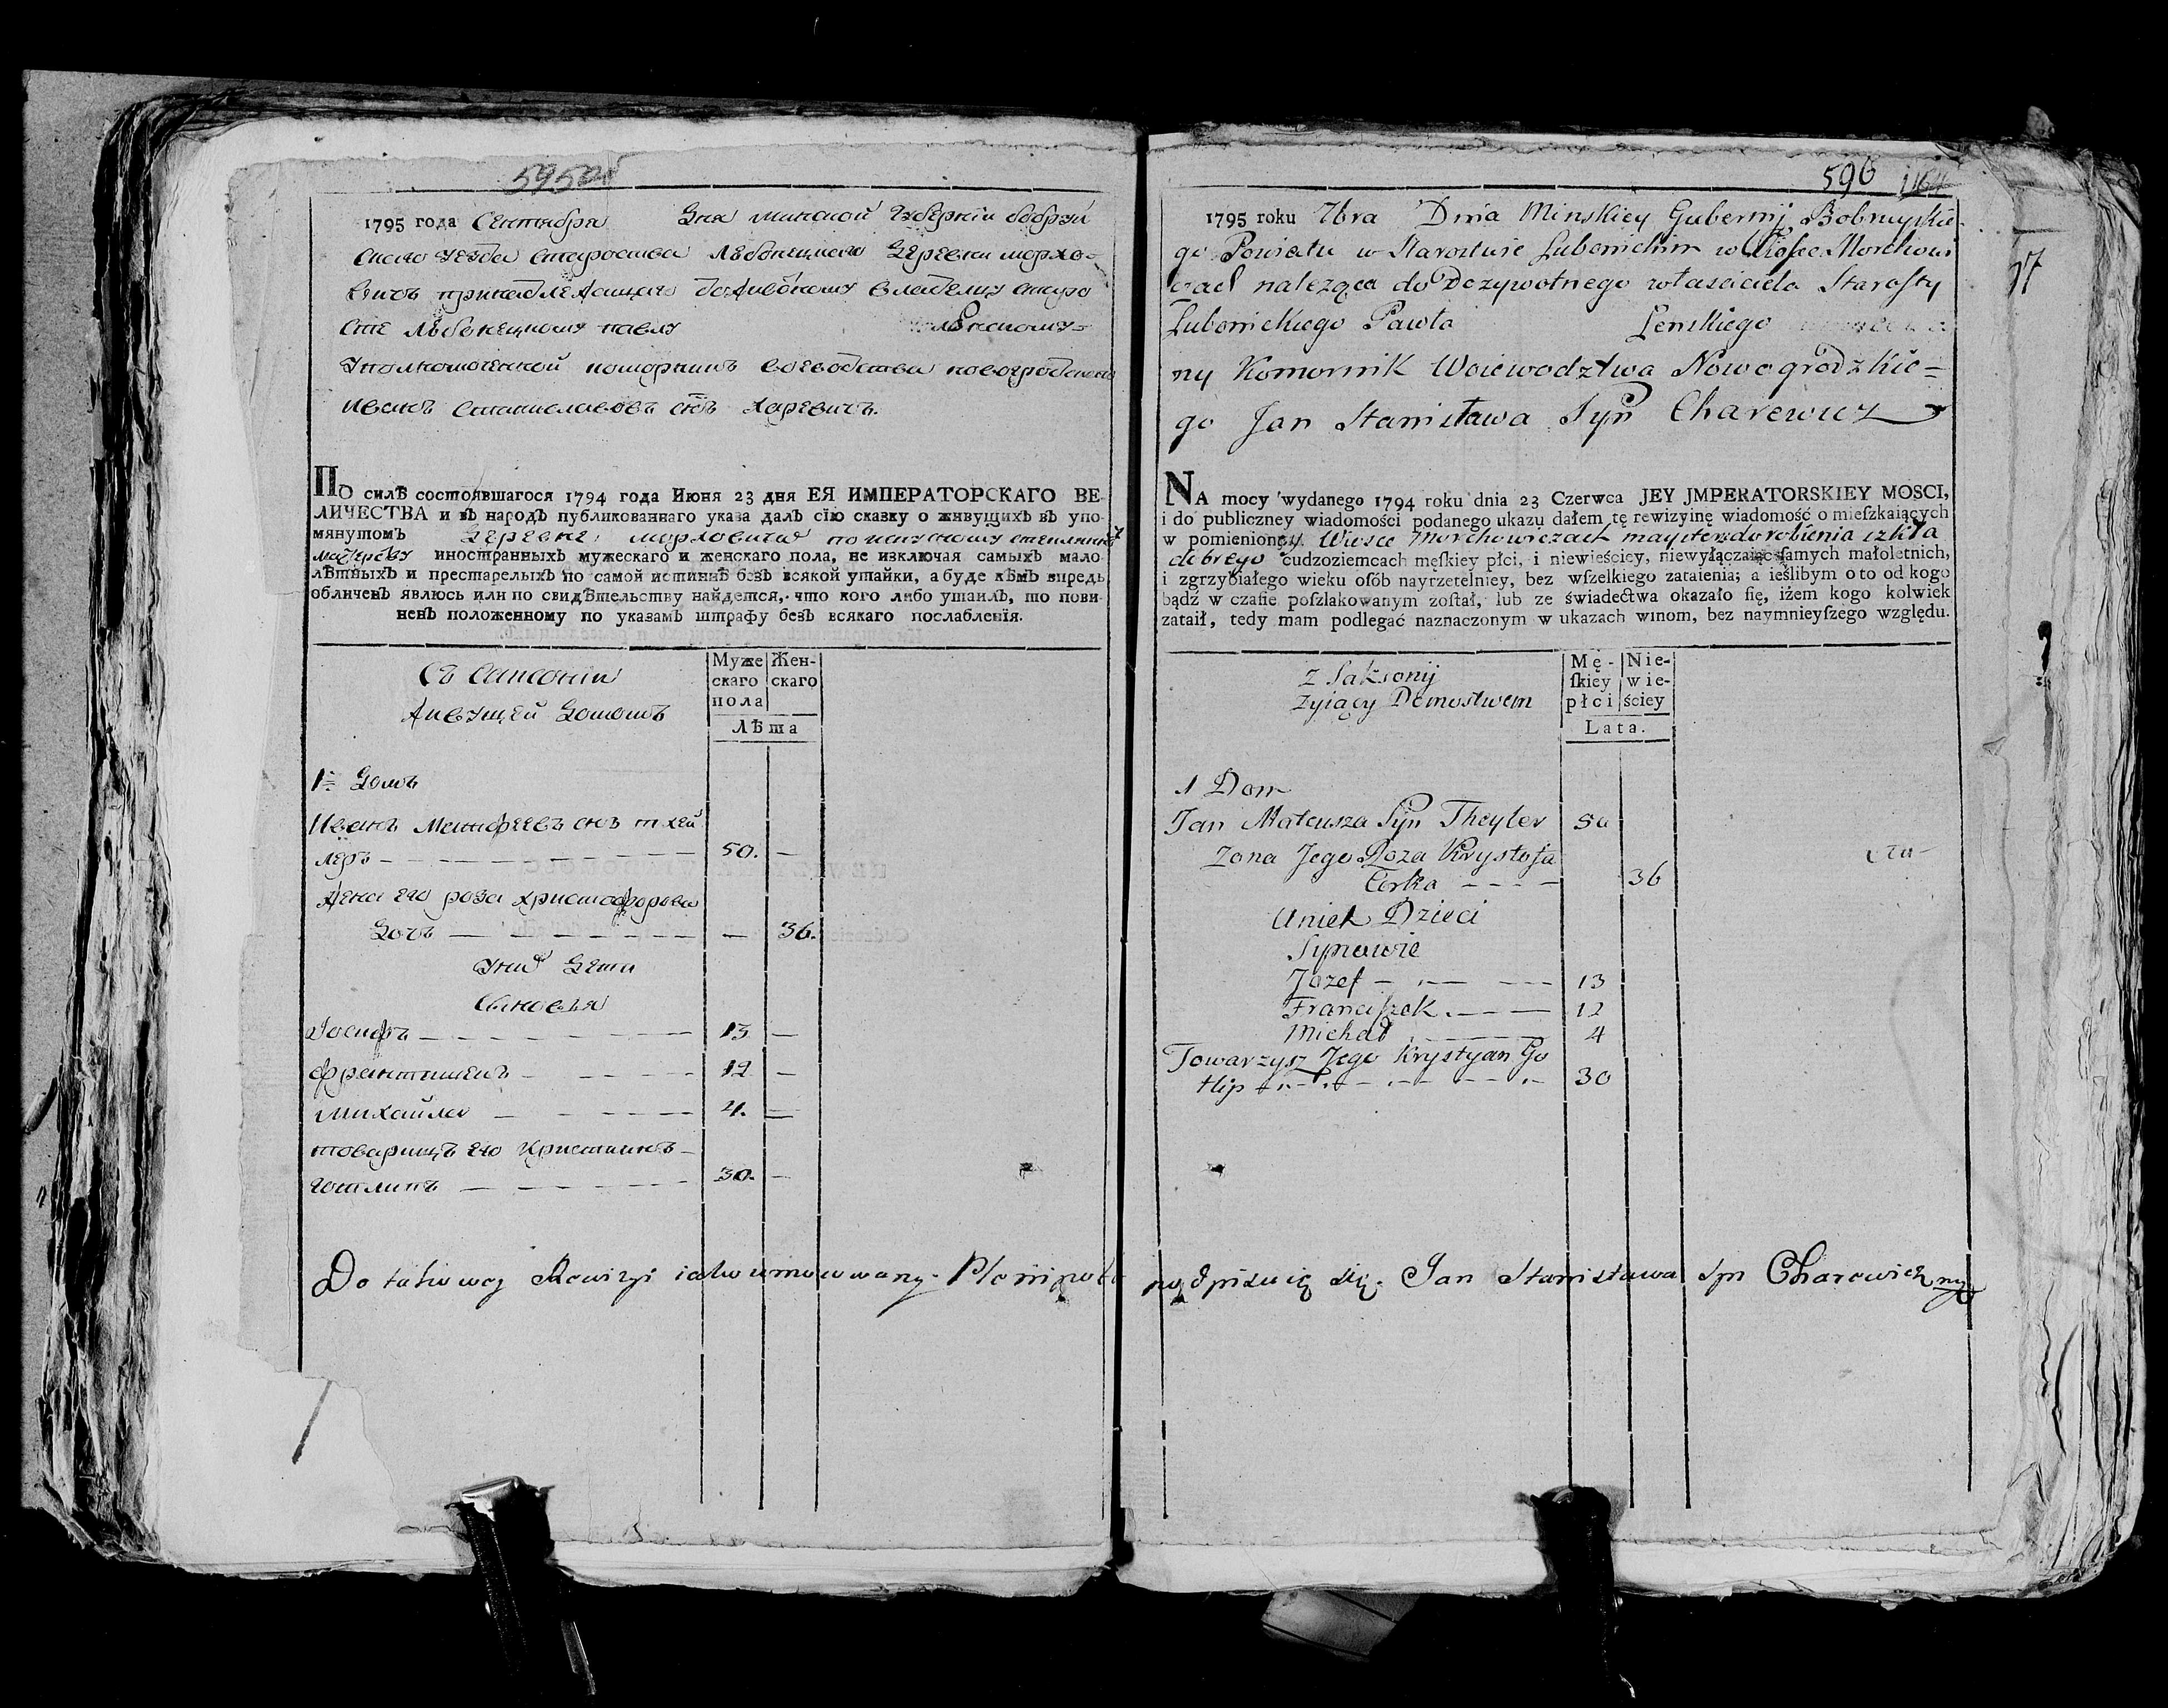 595об
1795 года Сентября дня минской губернии бобруй
скаго уезда староства любоницкаго деревни морхо-
вичъ принадлежащаго дожывотному владелцу старо
сте любоницкому павлу ленскому=
уполномоченной коморникъ воеводства новогродскаго
иванъ станиславовъ снъ харевичъ.
ПО силѣ состоявшагося 1794 года Июня 23 дня ЕЯ ИМПЕРАТОРСКАГО ВЕ-
ЛИЧЕСТВА и въ народъ публикованнаго указа далъ сїю сказку о живущихъ въ упо-
мянутомъ деревне морховичах
иностранныхъ мужескаго и женскаго пола, не изключая самыхъ мало-
лѣтныхъ и престарелыхъ по самой истиннѣ безъ всякой утайки, а буде кѣмъ впредь
обличенъ явлюсь или по свидѣтельству найдется, что кого либо утаилъ, то пови-
ненъ положенному по указамъ штрафу безъ всякаго послабленїя.
Муже Жен-
скаго скаго
пола
Лѣта
Съ саксонїи
живущей домомъ
1й домъ
Иванъ Матфеевъ снъ тхей
леръ 50. —
жена его роза христофорова
дочъ — 36.
у них дети
сыновья
Iосифъ 13 —
францишекъ 12 —
михайла 4. —
товарищъ его кристианъ
готлипъ 30. —
596
1795 roku 7bra Dnia Minskiey Gubernij Bobruyskie-
go Powiatu w Starostwie Lubonickim w Wiosce Morchowi
czach naleząca do Dozywotnego własciciela Starosty
Lubonickiego Pawła Lenskiego
ny Komornik Woiewodztwa Nowogrodzkie=
go Jan Stanisława Syn Charewicz
NA mocy wydanego 1794 roku dnia 23 Czerwca JEY JMPERATORSKIEY MOSCI,
i do publiczney wiadomości podanego ukazu dałem tę rewizyinę wiadomość o mieſzkaiących
w pomienioney Wiosce Morchowiczach mayster do robienia szkła
dobrego cudzoziemcach męſkiey płci, i niewieściey, niewyłączaiąc ſamych małoletnich,
i zgrzybiałego wieku osób nayrzetelniey, bez wſzelkiego zataienia; a ieślibym o to od kogo
bądź w czaſie poſzlakowanym zoſtał, lub ze świadectwa okazało ſię, iżem kogo kolwiek
zataił, tedy mam podlegać naznaczonym w ukazach winom, bez naymnieyſzego względu.
Mę- Nie-
ſkiey wie-
płci ściey
Lata.
Z Saksonij
zyiący Domostwem
1 Dom
Jan Mateusza Syn Theyler 50
Zona Jego Roza Krystofa
Corka 36
U nich Dzieci
Synowie
Jozef 13
Franciſzek 12
Michał 4
Towarzysz Jego Krystyan Go
tlip 30
Do takowey Rewizyi iako umocowany Plenipotent podpisuię się. Jan Stanisława syn Charewicz